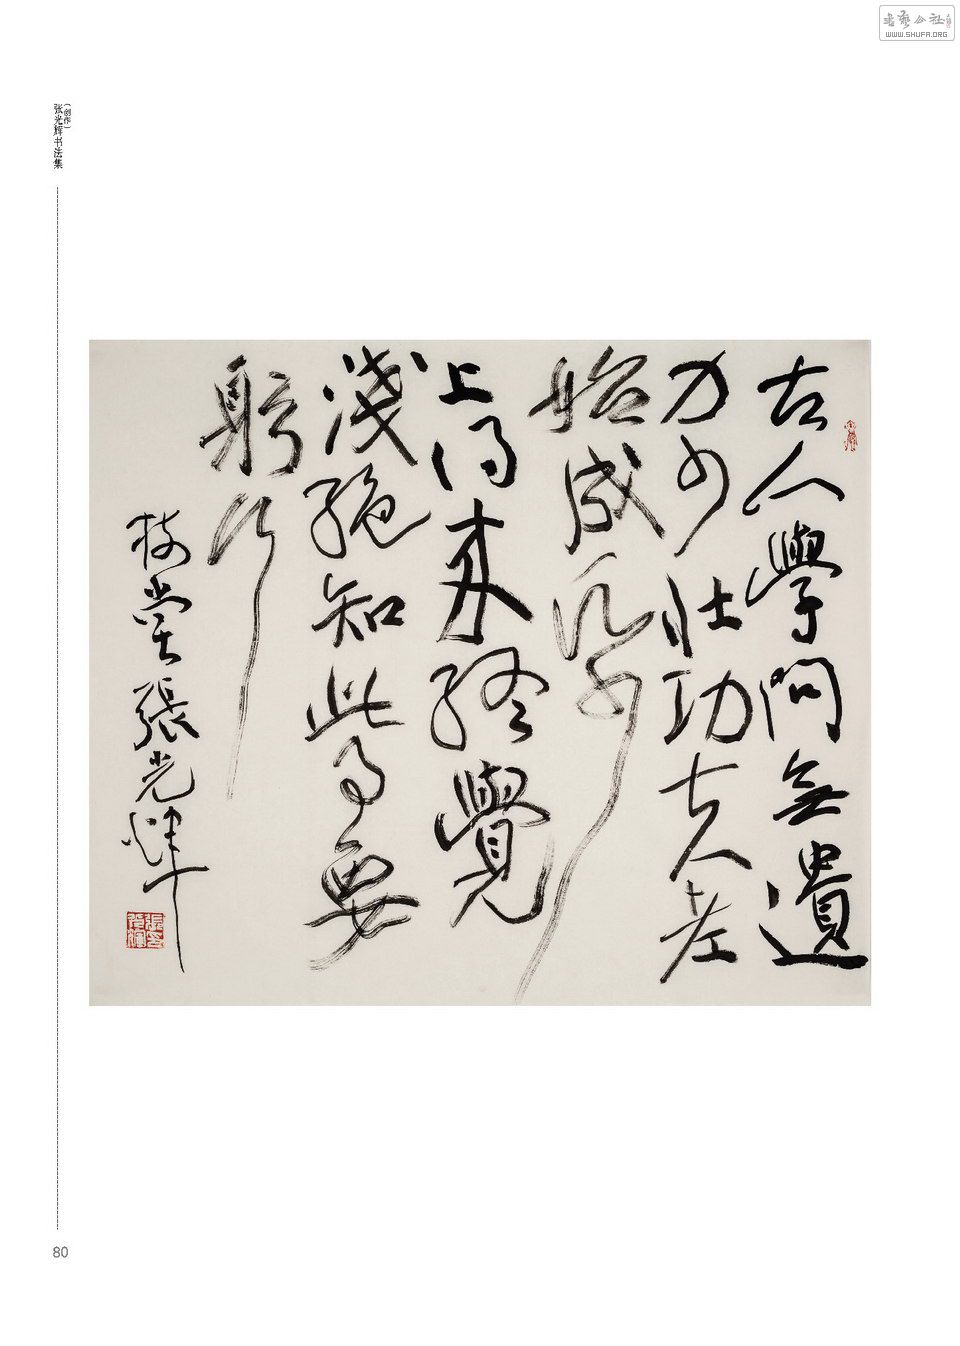 书艺公社
WWW.SHUFA.ORG
（创作）
张光辉书法集
古人學問無遺
力少壯功夫老
始成紙
上得來終覺
淺絕知此事要
躬行
堂張光輝
80